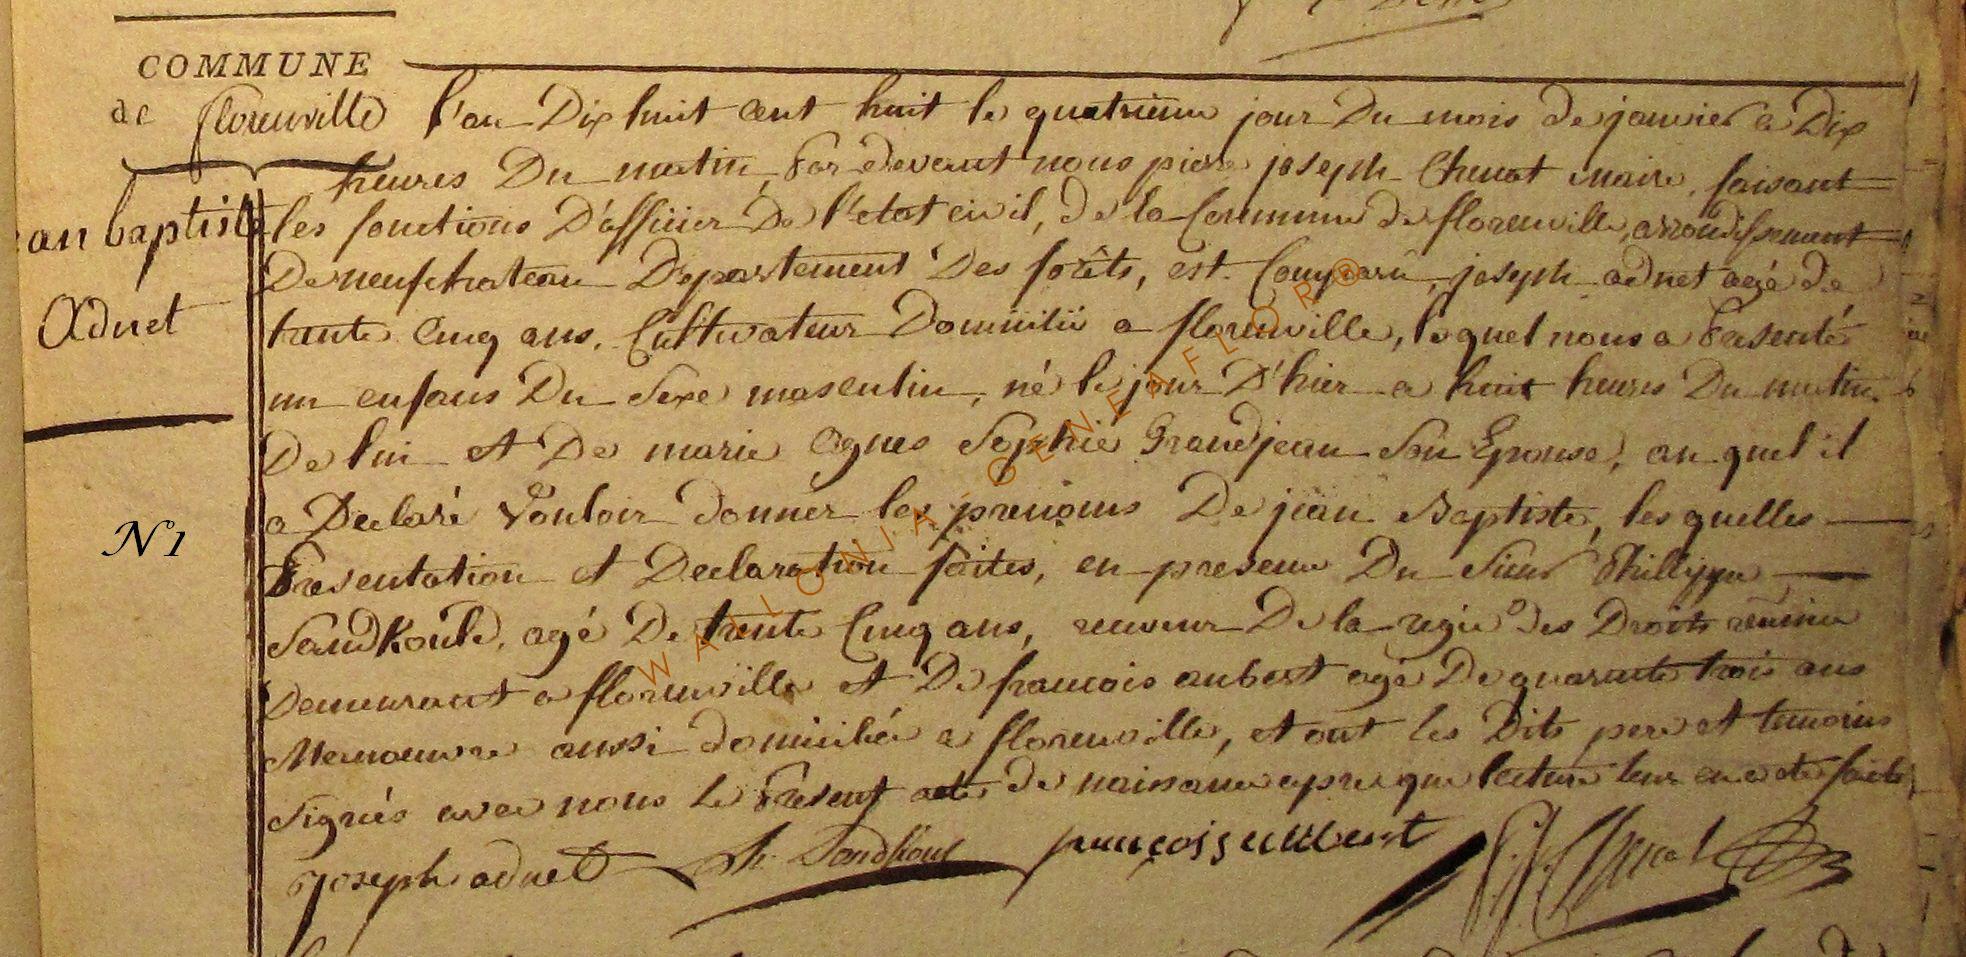 COMMUNE
de florenville l'an Dix huit cent huit le quatrieme jour Du mois de janvier a Dix
heures Du matin, Par devant nous piere joseph Chenot maire, faisant
an baptiste
les fonctions D'officier De l'etat civil, de la Commune de florenville, arrondissement
De neufchateau Departement Des forêts, est Comparu, joseph adnet agé de
Adnet
trente Cinq ans, Cultivateur Domicilié a florenville, lequel nous a Presenté
un enfans Du Sexe masculin, né le jour D'hier a huit heures Du matin
De lui et De marie Agnes Sophie Grandjean Son Epouse, au quel il
a Declaré Vouloir donner les prenoms De jean Baptiste, les quelles
N 1
Presentation et Declaration faites, en presence Du Sieur Phillippe
Sandkoule, agé De trente Cinq ans, receveur De la regie des Droits reunie
Demeurant a florenville et De francois aubert agé De quarante trois ans
Manoeuvre aussi domicilié a florenville, et ont les Dits pere et temoins
Signés avec nous le Present acte de naissance apres que lecture leur en a ete faite
joseph adnet Ph. Sandkoul francois aubert P. J. Chenot
WALLONIA-GENEAFLOR®